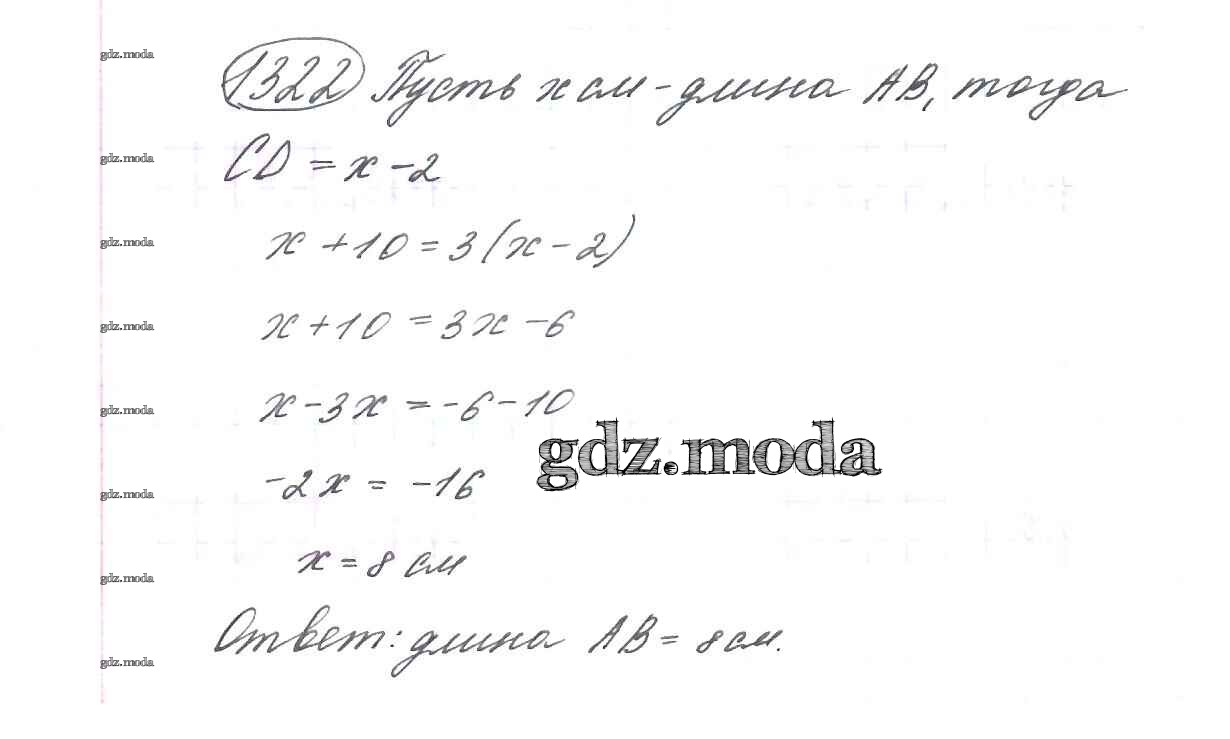 gdz.moda
1322 Пусть x см - длина AB, тогда
gdz.moda
CD = x - 2
gdz.moda
x + 10 = 3(x - 2)
gdz.moda
x + 10 = 3x - 6
gdz.moda
x - 3x = -6 - 10
gdz.moda
gdz.moda
-2x = -16
gdz.moda
x = 8 см
gdz.moda
Ответ: длина AB = 8 см.
gdz.moda